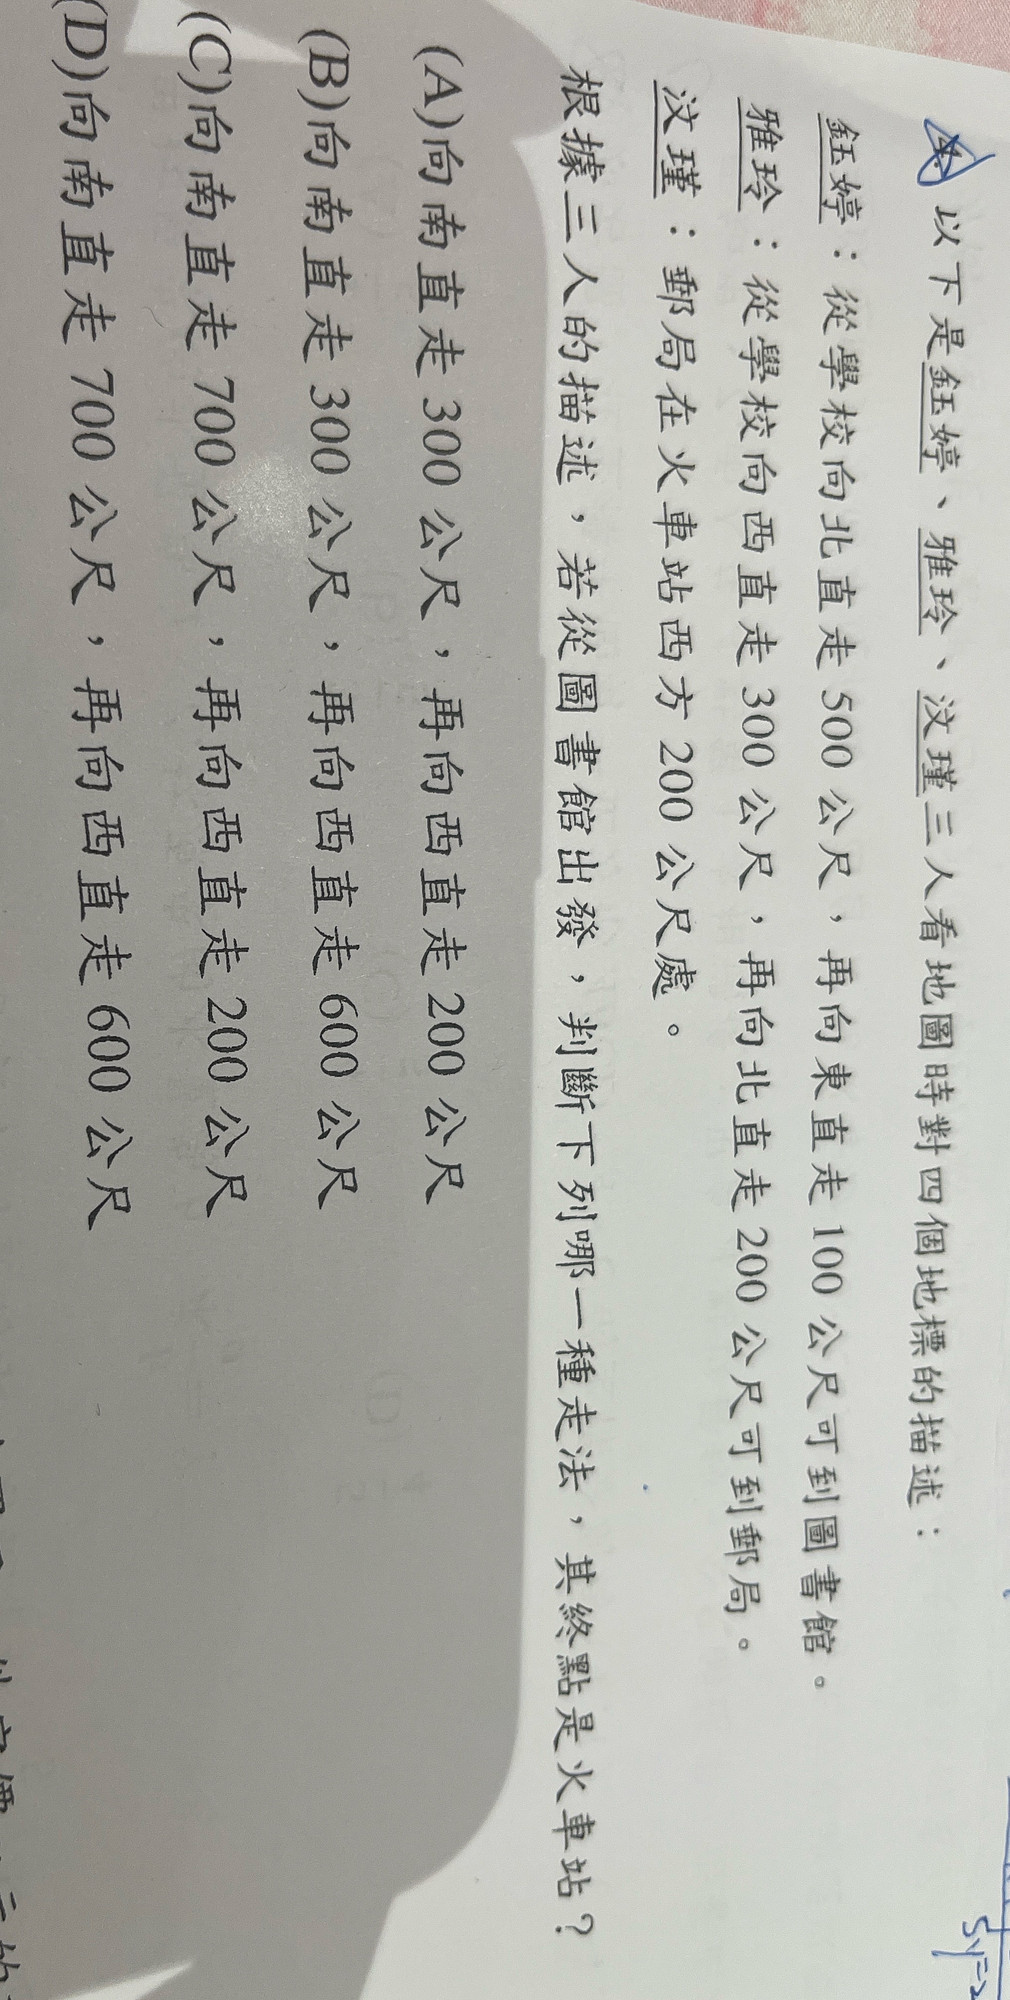 4. 以下是鈺婷、雅玲、汶瑾三人看地圖時對四個地標的描述：
鈺婷：從學校向北直走 500 公尺，再向東直走 100 公尺可到圖書館。
雅玲：從學校向西直走 300 公尺，再向北直走 200 公尺可到郵局。
汶瑾：郵局在火車站西方 200 公尺處。
根據三人的描述，若從圖書館出發，判斷下列哪一種走法，其終點是火車站？
(A)向南直走 300 公尺，再向西直走 200 公尺
(B)向南直走 300 公尺，再向西直走 600 公尺
(C)向南直走 700 公尺，再向西直走 200 公尺
(D)向南直走 700 公尺，再向西直走 600 公尺